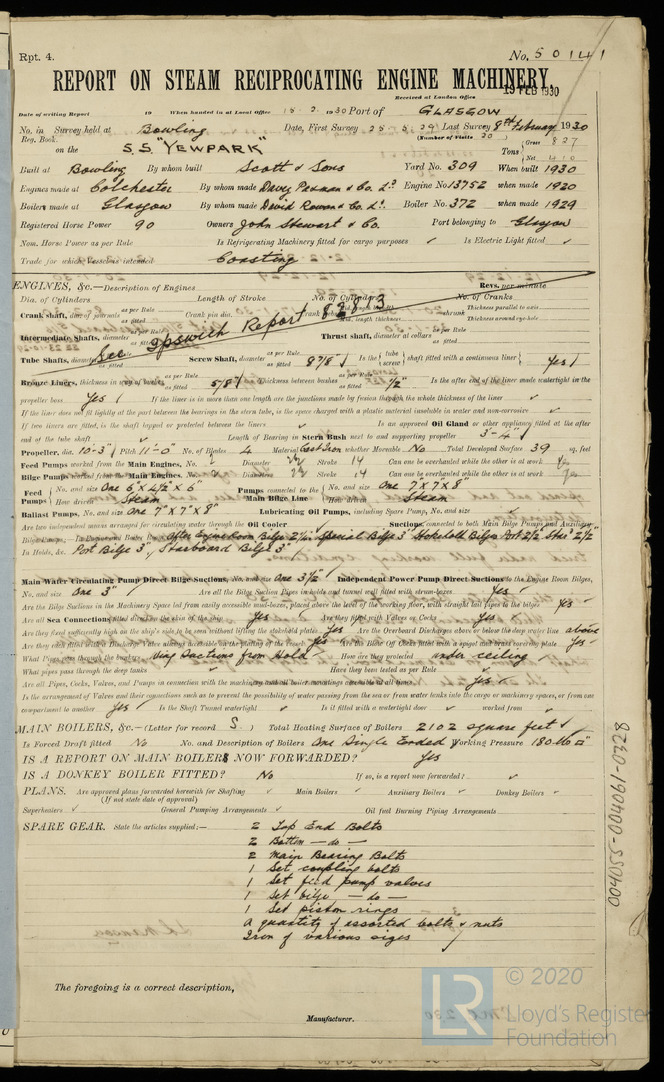 Rpt. 4.
No. 50141
REPORT ON STEAM RECIPROCATING ENGINE MACHINERY.
19 FEB 1930
Received at London Office
Date of writing Report 19 When handed in at Local Office 18. 2. 1930 Port of GLASGOW
No. in Survey held at Bowling Date, First Survey 25. 5. 29 Last Survey 8th February 1930
Reg. Book. (Number of Visits 20)
on the S.S. "YEWPARK" Tons { Gross 827
Net 410
Built at Bowling By whom built Scott & Sons Yard No. 309 When built 1930
Engines made at Colchester By whom made Davey Paxman & Co. Ld. Engine No. 13752 when made 1920
Boilers made at Glasgow By whom made David Rowan & Co. Ld. Boiler No. 372 when made 1929
Registered Horse Power 90 Owners John Stewart & Co. Port belonging to Glasgow
Nom. Horse Power as per Rule Is Refrigerating Machinery fitted for cargo purposes ✓ Is Electric Light fitted ✓
Trade for which Vessel is intended Coasting
ENGINES, &c.—Description of Engines Revs. per minute
Dia. of Cylinders Length of Stroke No. of Cylinders No. of Cranks
Crank shaft, dia. of journals as per Rule as fitted Crank pin dia. Crank shrunk Thickness parallel to axis Thickness around eye-hole
See Ipswich Report
Intermediate Shafts, diameter as per Rule as fitted Thrust shaft, diameter at collars as per Rule as fitted
Tube Shafts, diameter as per Rule as fitted Screw Shaft, diameter as per Rule as fitted 8 7/8" Is the { tube screw } shaft fitted with a continuous liner { Yes
Bronze Liners, thickness in way of bushes as per Rule as fitted 5/8" Thickness between bushes as per Rule as fitted 1/2" Is the after end of the liner made watertight in the
propeller boss Yes If the liner is in more than one length are the junctions made by fusion through the whole thickness of the liner ✓
If the liner does not fit tightly at the part between the bearings in the stern tube, is the space charged with a plastic material insoluble in water and non-corrosive ✓
If two liners are fitted, is the shaft lapped or protected between the liners ✓ Is an approved Oil Gland or other appliance fitted at the after
end of the tube shaft ✓ Length of Bearing in Stern Bush next to and supporting propeller 3'-4"
Propeller, dia. 10'-3" Pitch 11'-0" No. of Blades 4 Material Cast Iron whether Moveable No Total Developed Surface 39 sq. feet
Feed Pumps worked from the Main Engines, No. Diameter Stroke 14 Can one be overhauled while the other is at work Yes
Bilge Pumps worked from the Main Engines, No. Diameter Stroke 14 Can one be overhauled while the other is at work Yes
Feed Pumps { No. and size One 6" x 4 1/2" x 6" Pumps connected to the Main Bilge Line { No. and size One 7" x 7" x 8"
How driven Steam How driven Steam
Ballast Pumps, No. and size One 7" x 7" x 8" Lubricating Oil Pumps, including Spare Pump, No. and size ✓
Are two independent means arranged for circulating water through the Oil Cooler ✓ Suctions, connected to both Main Bilge Pumps and Auxiliary
In Holds, &c. Port Bilge 3", Starboard Bilge 3"
Main Water Circulating Pump Direct Bilge Suctions, No. and size One 3 1/2" Independent Power Pump Direct Suctions to the Engine Room Bilges,
No. and size One 3" Are all the Bilge Suction Pipes in holds and tunnel well fitted with strum-boxes Yes
Are the Bilge Suctions in the Machinery Space led from easily accessible mud-boxes, placed above the level of the working floor, with straight tail pipes to the bilges Yes
Are all Sea Connections fitted direct on the skin of the ship Yes Are they fitted with Valves or Cocks Yes
Are they fixed sufficiently high on the ship's side to be seen without lifting the stokehold plates Yes Are the Overboard Discharges above or below the deep water line above
Are they each fitted with a Discharge Valve always accessible on the plating of the vessel Yes Are the Blow Off Cocks fitted with a spigot and brass covering plate Yes
What Pipes pass through the bunkers Bilge Suctions from Hold How are they protected under ceiling
What pipes pass through the deep tanks Have they been tested as per Rule
Are all Pipes, Cocks, Valves, and Pumps in connection with the machinery and all boiler mountings accessible at all times Yes
Is the arrangement of Valves and their connections such as to prevent the possibility of water passing from the sea or from water tanks into the cargo or machinery spaces, or from one
compartment to another Yes Is the Shaft Tunnel watertight ✓ Is it fitted with a watertight door ✓ worked from
MAIN BOILERS, &c.—(Letter for record S.) Total Heating Surface of Boilers 2102 square feet
Is Forced Draft fitted No No. and Description of Boilers One Single Ended Working Pressure 180 lb □"
IS A REPORT ON MAIN BOILERS NOW FORWARDED? Yes
IS A DONKEY BOILER FITTED? No If so, is a report now forwarded? ✓
PLANS. Are approved plans forwarded herewith for Shafting ✓ Main Boilers ✓ Auxiliary Boilers ✓ Donkey Boilers ✓
(If not state date of approval)
Superheaters ✓ General Pumping Arrangements ✓ Oil fuel Burning Piping Arrangements
SPARE GEAR. State the articles supplied:— 2 Top End Bolts
2 Bottom — do —
2 Main Bearing Bolts
1 Set coupling bolts
1 Set feed pump valves
1 Set bilge — do —
1 Set piston rings
A quantity of assorted bolts & nuts
Iron of various sizes
The foregoing is a correct description,
Manufacturer.
004055-004061-0328
LR © 2020
Lloyd's Register
Foundation